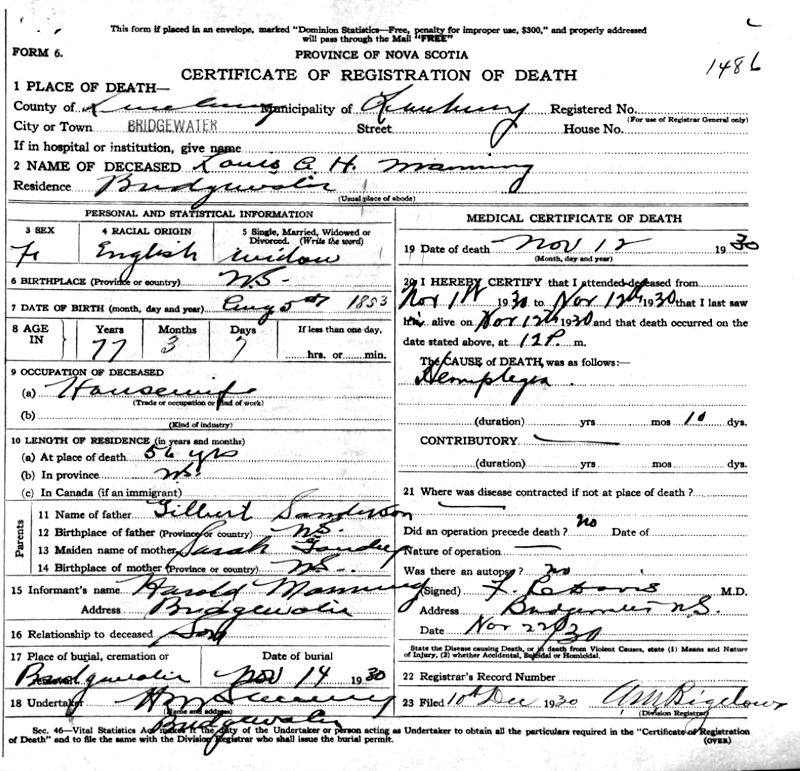 This form if placed in an envelope, marked "Dominion Statistics—Free, penalty for improper use, $300," and properly addressed
will pass through the Mail "FREE"
FORM 6.
PROVINCE OF NOVA SCOTIA
1486
CERTIFICATE OF REGISTRATION OF DEATH
1 PLACE OF DEATH—
County of Lunenburg Municipality of Lunenburg Registered No.
(For use of Registrar General only)
City or Town BRIDGEWATER Street House No.
If in hospital or institution, give name
2 NAME OF DECEASED Louis A H. Manning
Residence Bridgewater
(Usual place of abode)
PERSONAL AND STATISTICAL INFORMATION
3 SEX 4 RACIAL ORIGIN 5 Single, Married, Widowed or Divorced. (Write the word)
Fe English Widow
6 BIRTHPLACE (Province or country) N.S.
7 DATE OF BIRTH (month, day and year) Aug 5th 1853
8 AGE IN Years Months Days If less than one day,
77 3 7 hrs. or min.
9 OCCUPATION OF DECEASED
(a) Housewife
(Trade or occupation or kind of work)
(b)
(Kind of industry)
10 LENGTH OF RESIDENCE (in years and months)
(a) At place of death 56 yrs
(b) In province N.S.
(c) In Canada (if an immigrant)
Parents
11 Name of father Gilbert Sanderson
12 Birthplace of father (Province or country) N.S.
13 Maiden name of mother Sarah
14 Birthplace of mother (Province or country) N.S.
15 Informant's name Harold Manning
Address Bridgewater
16 Relationship to deceased Son
17 Place of burial, cremation or Date of burial
Bridgewater Nov 14 1930
18 Undertaker
(Name and address)
Bridgewater
MEDICAL CERTIFICATE OF DEATH
19 Date of death Nov 12 1930
(Month, day and year)
20 I HEREBY CERTIFY that I attended deceased from
Nov 1st 1930 to Nov 12th 1930 that I last saw
alive on Nov 12th 1930 and that death occurred on
date stated above, at 12 P. m.
The CAUSE of DEATH, was as follows:—
Hemiplegia
(duration) yrs mos 10 dys.
CONTRIBUTORY
(duration) yrs. mos. dys.
21 Where was disease contracted if not at place of death?
Did an operation precede death? no Date of
Nature of operation
Was there an autopsy? no
(Signed) F. Davis M.D.
Address Bridgewater N.S.
Date Nov 22/30
State the Disease causing Death, or in death from Violent Causes, state (1) Means and Nature
of Injury, (2) whether Accidental, Suicidal or Homicidal.
22 Registrar's Record Number
23 Filed 10th Dec 1930 Bigelow
(Division Registrar)
Sec. 46—Vital Statistics Act makes it the duty of the Undertaker or person acting as Undertaker to obtain all the particulars required in the "Certificate of Registration
of Death" and to file the same with the Division Registrar who shall issue the burial permit.
(OVER)